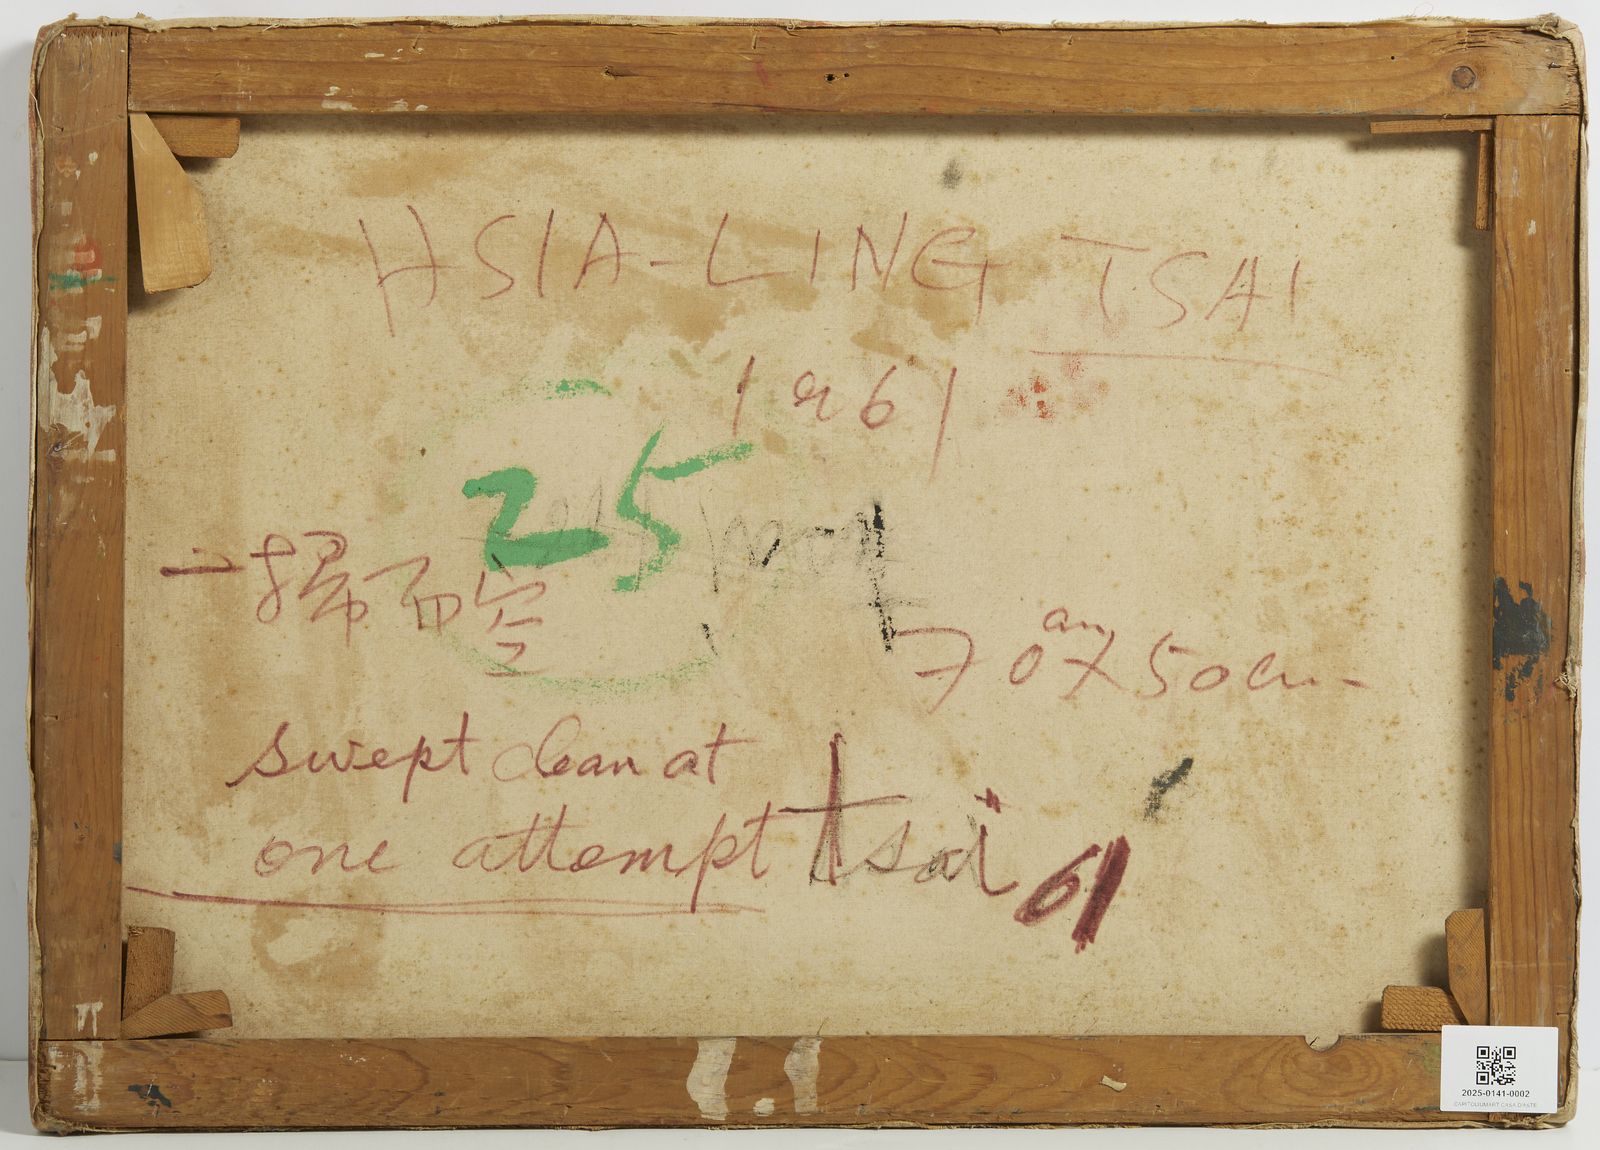 HSIA-LING TSAI
1961
25
一掃而空
70 cm x 50 cm-
swept clean at
one attempt
tsai 61
2025-0141-0002
CAPITOLIUMART CASA D'ASTE